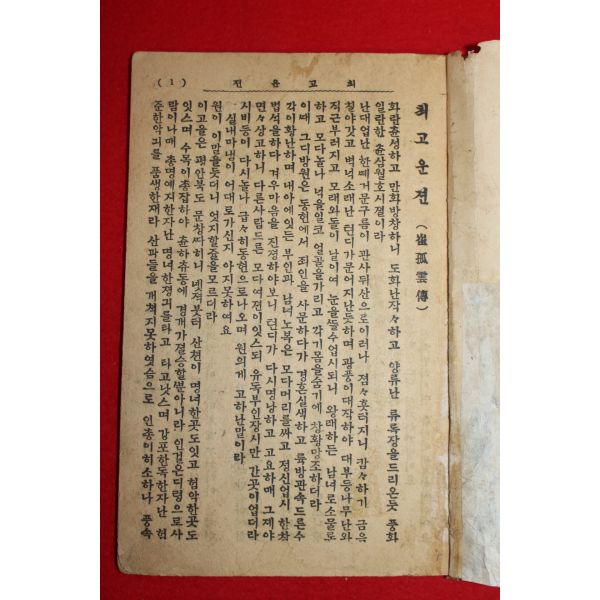 최고운젼 (1)
최고운젼 (崔孤雲傳)
화란츈셩하고 만화방창하니 도화난작々하고 양류난 류록장을드리온듯 풍화
일란한 츈삼월호시졀이라
난대업난 한떼거문구름이 관사뒤산으로이러나 졈々훗터지니 감々하기 금음
칠야갓고 벽녁소래난 텬디가문어지난듯하며 광풍이대작하야 대부등나무난와
직근부러지고 모래와돌이 날이여 눈을뜰수업시되니 왕래하든 남녀로소물로
하고 모다놀나 넉을일코 얼골을가리고 각기몸을숨기에 창황망조하더라
이때 그디방원은 동헌에서 죄인을 사문하다가 경혼실색하고 륙방관속드른수
각이황난하며 내아에잇든 부인과 남녀노복은 모다머리를싸고 졍신업시 한찻
법셕을하다 겨우마음을 진졍하야보니 텬디가 다시명낭하고 고요하매 그졔야
면々상고하니 다른사람드른 모다여젼이잇스되 유독부인장시만 간곳이업더라
시비등이 다시놀나 급々히동헌으로나오며 원의게 고하난말이라
실내마냄이 어대로가신지 아지못하여요
원이 이말을듯더니 엇지할줄을모르더라
이고을은 평안북도 문창싸히니 녯젹붓터 산쳔이 명녀한곳도잇고 험악한곳도
잇스며 수목이총잡하야 츈하츄동에 경개가졀승할뿐아니라 인걸은디령으로사
람이나매 총명예지한자난 명녀한졍긔를타고 타고낫스며 강포한독한자난 험
쥰한악긔를 품생한재라 산파들을 개쳑지못하엿슴으로 인총이히소하나 풍속